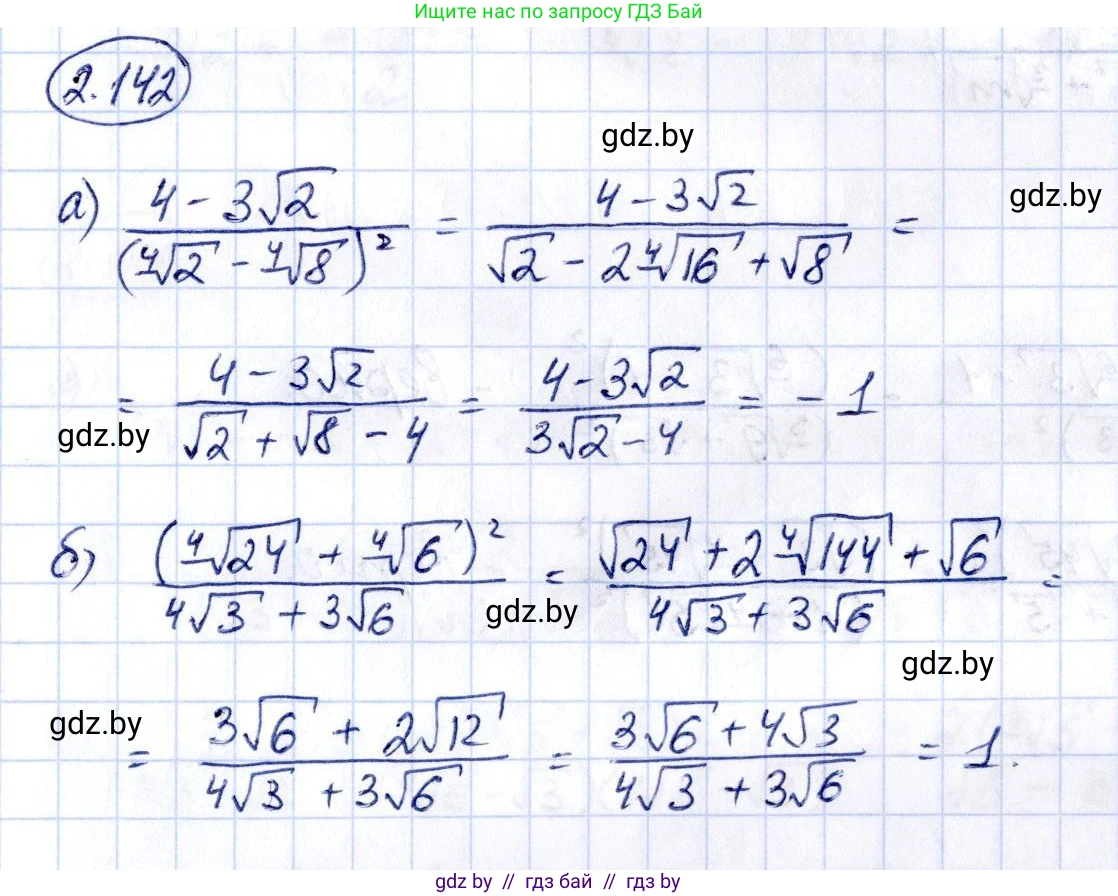 Ищите нас по запросу ГДЗ Бай
2.142
gdz.by
gdz.by
а) \frac{4-3\sqrt{2}}{(\sqrt[4]{2}-\sqrt[4]{8})^2} = \frac{4-3\sqrt{2}}{\sqrt{2}-2\sqrt[4]{16}+\sqrt{8}} =
= \frac{4-3\sqrt{2}}{\sqrt{2}+\sqrt{8}-4} = \frac{4-3\sqrt{2}}{3\sqrt{2}-4} = -1
gdz.by
б) \frac{(\sqrt[4]{24}+\sqrt[4]{6})^2}{4\sqrt{3}+3\sqrt{6}} = \frac{\sqrt{24}+2\sqrt[4]{144}+\sqrt{6}}{4\sqrt{3}+3\sqrt{6}} =
gdz.by
gdz.by
gdz.by
= \frac{3\sqrt{6}+2\sqrt{12}}{4\sqrt{3}+3\sqrt{6}} = \frac{3\sqrt{6}+4\sqrt{3}}{4\sqrt{3}+3\sqrt{6}} = 1.
gdz.by // гдз бай // гдз by